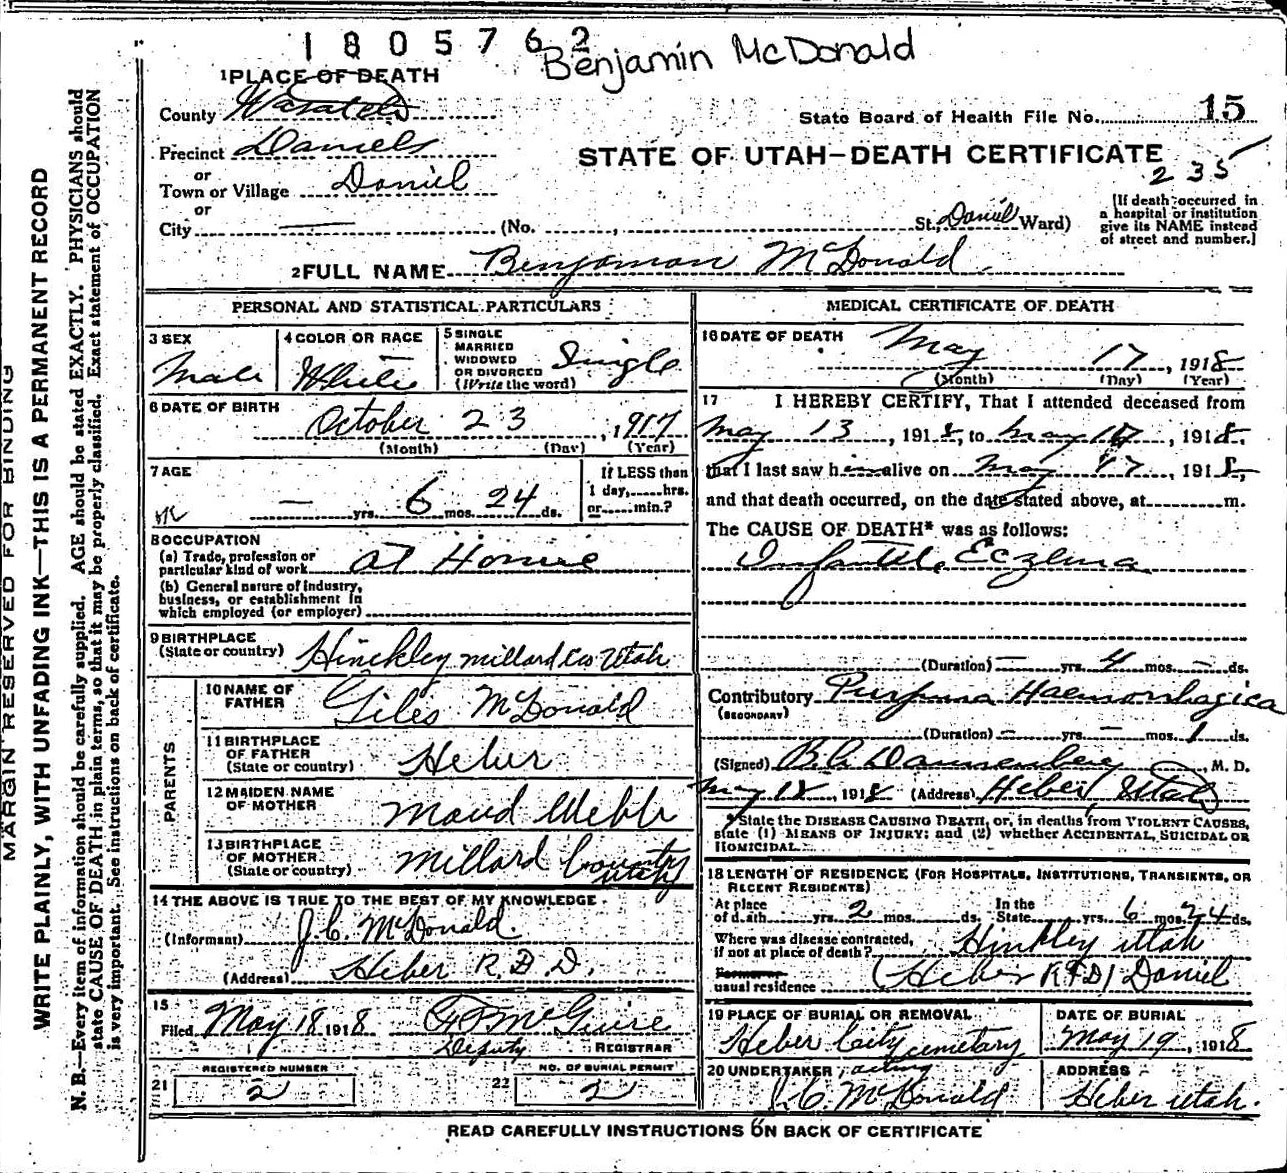 1805762
Benjamin McDonald
1 PLACE OF DEATH
County Wasatch
State Board of Health File No. 15
Precinct Daniels
STATE OF UTAH—DEATH CERTIFICATE
235
or
Town or Village Daniel
or
City — (No. , St., Daniel Ward)
[If death occurred in
a hospital or institution
give its NAME instead
of street and number.]
2 FULL NAME Benjaman McDonald
PERSONAL AND STATISTICAL PARTICULARS
3 SEX
Male
4 COLOR OR RACE
White
5 SINGLE
MARRIED
WIDOWED
OR DIVORCED
(Write the word)
Single
6 DATE OF BIRTH
October 23, 1917
(Month) (Day) (Year)
7 AGE
— yrs. 6 mos. 24 ds.
If LESS than
1 day, hrs.
or min.?
8 OCCUPATION
(a) Trade, profession or
particular kind of work at Home
(b) General nature of industry,
business, or establishment in
which employed (or employer)
9 BIRTHPLACE
(State or country) Hinckley Millard Co Utah
PARENTS
10 NAME OF
FATHER Giles McDonald
11 BIRTHPLACE
OF FATHER
(State or country) Heber
12 MAIDEN NAME
OF MOTHER Maud Webb
13 BIRTHPLACE
OF MOTHER
(State or country) Millard County
Utah
14 THE ABOVE IS TRUE TO THE BEST OF MY KNOWLEDGE
(Informant) J. C. McDonald.
(Address) Heber R.D.D.
15
Filed May 18 1918 McGuire
Deputy REGISTRAR
REGISTERED NUMBER
21 2
NO. OF BURIAL PERMIT
22 2
MEDICAL CERTIFICATE OF DEATH
16 DATE OF DEATH
May 17, 1918
(Month) (Day) (Year)
17 I HEREBY CERTIFY, That I attended deceased from
May 13, 1918, to May 17, 1918,
that I last saw him alive on May 17, 1918,
and that death occurred, on the date stated above, at m.
The CAUSE OF DEATH* was as follows:
Infantile Eczema
(Duration) — yrs. 4 mos. — ds.
Contributory Purpura Haemorrhagica
(SECONDARY)
(Duration) — yrs. — mos. 1 ds.
(Signed) Dannenberg, M. D.
May 18, 1918 (Address) Heber, Utah
*State the DISEASE CAUSING DEATH, or, in deaths from VIOLENT CAUSES,
state (1) MEANS OF INJURY; and (2) whether ACCIDENTAL, SUICIDAL OR
HOMICIDAL.
18 LENGTH OF RESIDENCE (FOR HOSPITALS, INSTITUTIONS, TRANSIENTS, OR
RECENT RESIDENTS)
At place
of death yrs. 2 mos. ds.
In the
State yrs. 6 mos. 24 ds.
Where was disease contracted,
if not at place of death? Hinkley Utah
Former or
usual residence (Heber RFD) Daniel
19 PLACE OF BURIAL OR REMOVAL
Heber City
cemetary
DATE OF BURIAL
May 19, 1918
20 UNDERTAKER, acting
J. C. McDonald
ADDRESS
Heber Utah.
READ CAREFULLY INSTRUCTIONS ON BACK OF CERTIFICATE
MARGIN RESERVED FOR BINDING
WRITE PLAINLY, WITH UNFADING INK—THIS IS A PERMANENT RECORD
N. B.—Every item of information should be carefully supplied. AGE should be stated EXACTLY. PHYSICIANS should
state CAUSE OF DEATH in plain terms, so that it may be properly classified. Exact statement of OCCUPATION
is very important. See instructions on back of certificate.